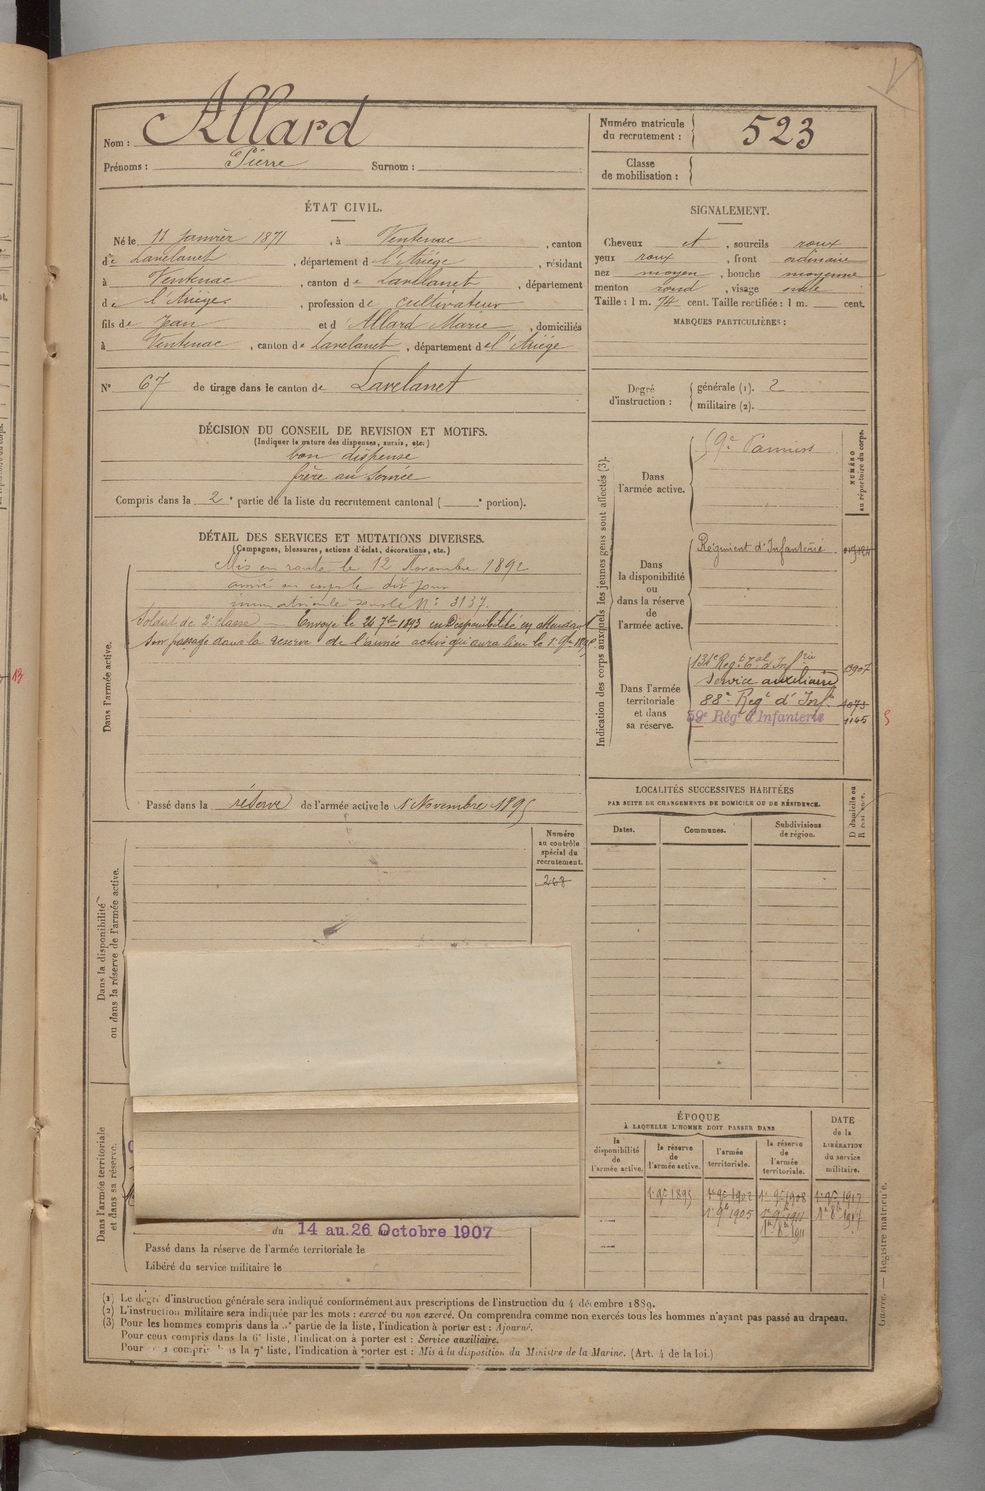 Nom : Allard
Prénoms : Pierre Surnom :
Numéro matricule du recrutement : 523
Classe de mobilisation :
ÉTAT CIVIL.
Né le 11 Janvier 1871, à Ventenac, canton
de Lavelanet, département d l'Ariège, résidant
à Ventenac, canton de Lavelanet, département
de l'Ariège, profession de cultivateur
fils de Jean et d Allard Marie, domiciliés
à Ventenac, canton de Lavelanet, département de l'Ariège
N° 67 de tirage dans le canton de Lavelanet
SIGNALEMENT.
Cheveux et, sourcils roux
yeux roux, front ordinaire
nez moyen, bouche moyenne
menton rond, visage ovale
Taille : 1 m. 74 cent. Taille rectifiée : 1 m. cent.
MARQUES PARTICULIÈRES :
Degré d'instruction :
générale (1). 2
militaire (2).
DÉCISION DU CONSEIL DE REVISION ET MOTIFS.
(Indiquer la nature des dispenses, sursis, etc.)
bon dispense
frère au Service
Compris dans la 2e partie de la liste du recrutement cantonal ( e portion).
DÉTAIL DES SERVICES ET MUTATIONS DIVERSES.
(Campagnes, blessures, actions d'éclat, décorations, etc.)
Dans l'armée active.
Mis en route le 12 Novembre 1892
arrivé au corps le dit jour
immatriculé sous le N° 3137.
Soldat de 2e classe Envoyé le 24 7bre 1893 en Disponibilité en attendant
son passage dans la réserve de l'armée active qui aura lieu le 1er 9bre 1895
Passé dans la réserve de l'armée active le 1 Novembre 1895
Indication des corps auxquels les jeunes gens sont affectés (3).
NUMÉRO au répertoire du corps.
Dans l'armée active.
59e Pamiers
Dans la disponibilité ou dans la réserve de l'armée active.
Régiment d'Infanterie
Dans l'armée territoriale et dans sa réserve.
131e Reg. t al d'Inf rie 13907
Service auxiliaire
88e Reg t d'Inf ie 1073
59e Rég t d'Infanterie 1145
LOCALITÉS SUCCESSIVES HABITÉES
PAR SUITE DE CHANGEMENTS DE DOMICILE OU DE RÉSIDENCE.
Dates. Communes. Subdivisions de région. D domicile ou R résidence.
Numéro au contrôle spécial du recrutement.
268
Dans la disponibilité ou dans la réserve de l'armée active.
Dans l'armée territoriale et dans sa réserve.
du 14 au 26 Octobre 1907
Passé dans la réserve de l'armée territoriale le
Libéré du service militaire le
ÉPOQUE
À LAQUELLE L'HOMME DOIT PASSER DANS
la disponibilité de l'armée active.
la réserve de l'armée active.
l'armée territoriale.
la réserve de l'armée territoriale.
DATE de la LIBÉRATION du service militaire.
1er 9bre 1895 1er 9bre 1902 1er 9bre 1908 1er 9bre 1917
1er 9bre 1905 1er 9bre 1911 1er 8bre 1917
1er 8bre 1911
(1) Le degré d'instruction générale sera indiqué conformément aux prescriptions de l'instruction du 4 décembre 1889.
(2) L'instruction militaire sera indiquée par les mots : exercé ou non exercé. On comprendra comme non exercés tous les hommes n'ayant pas passé au drapeau.
(3) Pour les hommes compris dans la partie de la liste, l'indication à porter est : Ajourné.
Pour ceux compris dans la 6e liste, l'indication à porter est : Service auxiliaire.
Pour ceux compris dans la 7e liste, l'indication à porter est : Mis à la disposition du Ministre de la Marine. (Art. 4 de la loi.)
Guerre. — Registre matricule.